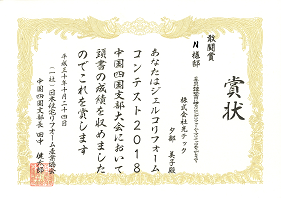 賞状
敢闘賞
N様邸
株式会社光テック
夕部 美子殿
あなたはジェルコリフォーム
コンテスト2018
中国四国支部大会において
頭書の成績を収めました
のでこれを賞します
平成三十年十月二十四日
(一社)日本住宅リフォーム産業協会
中国四国支部長 田中